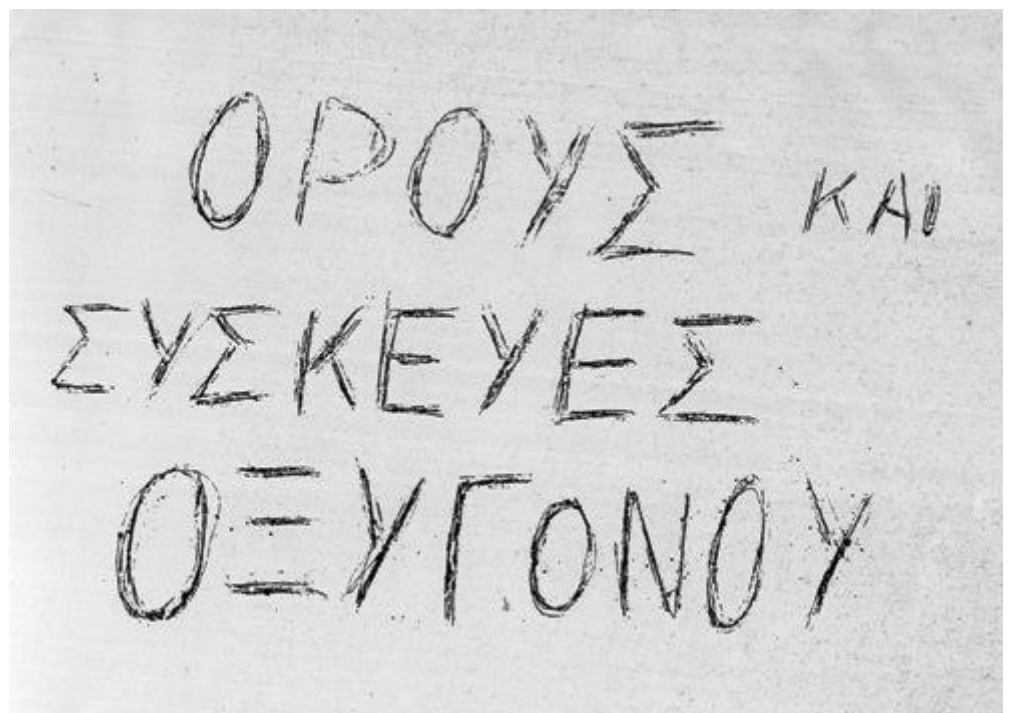 ΟΡΟΥΣ ΚΑΙ
ΣΥΣΚΕΥΕΣ
ΟΞΥΓΟΝΟΥ